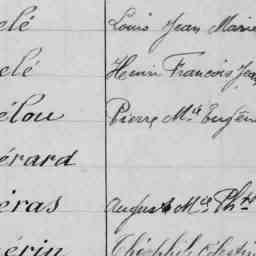 elé Louis Jean Marie
elé Henri François Jea
élou Pierre M.ie Eugèn
érard
éras August M.ie Ph.re
érin Théophile Célestin